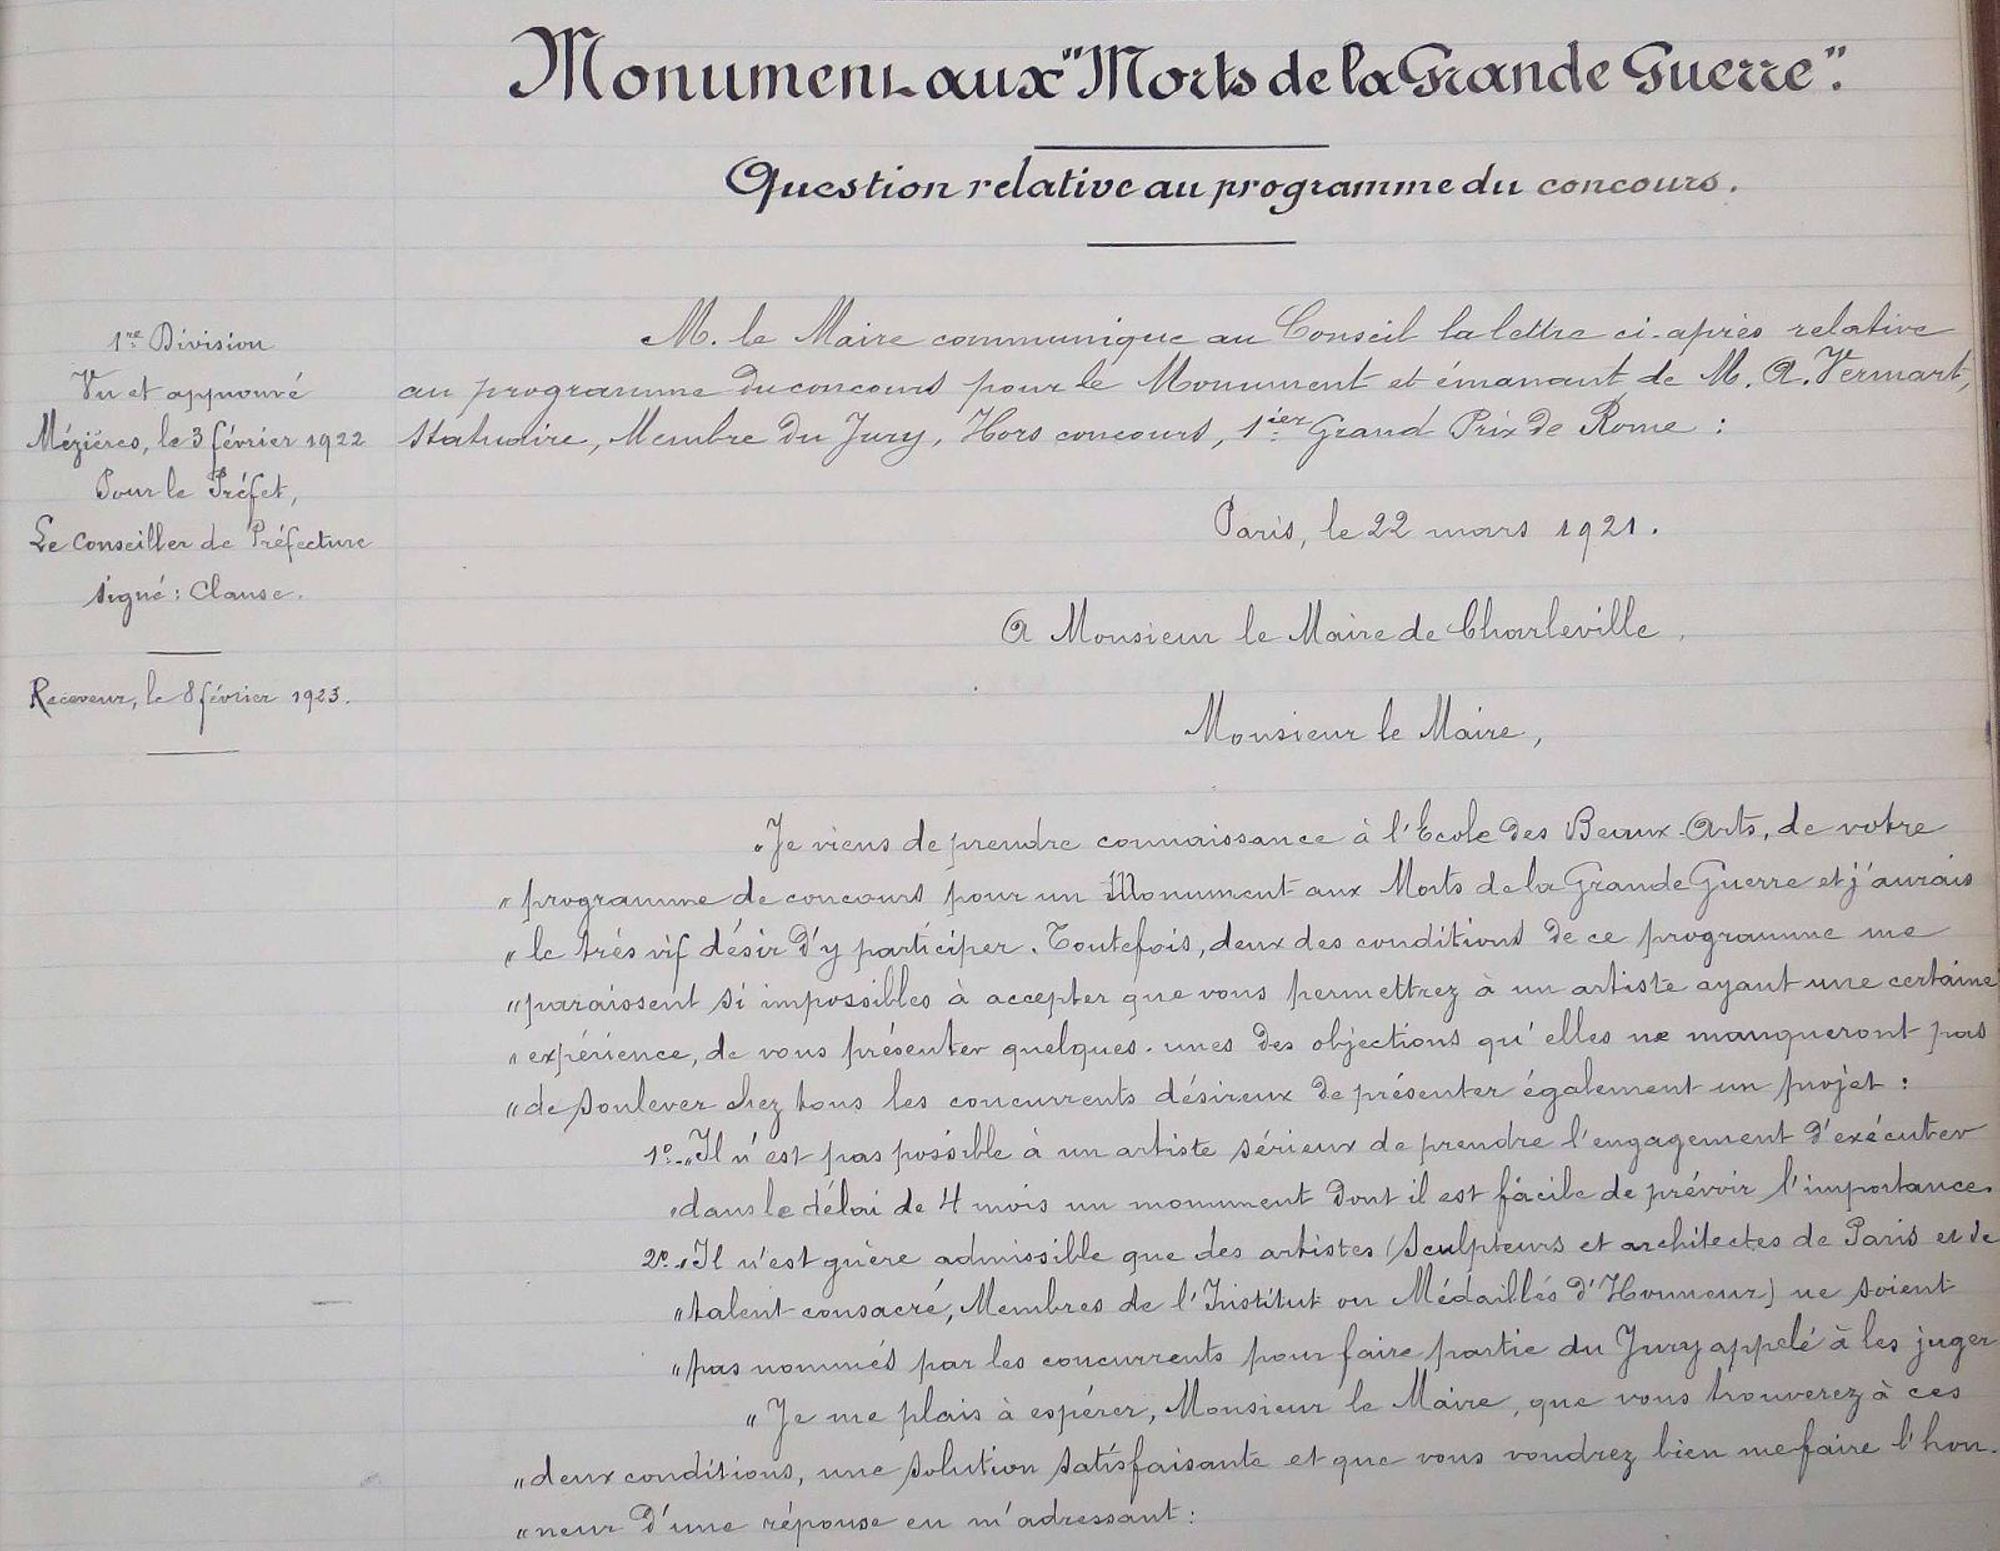 Monument aux "Morts de la Grande Guerre".
Question relative au programme du concours.
1re Division
Vu et approuvé
Mézières, le 3 février 1922
Pour le Préfet,
Le Conseiller de Préfecture
signé : Clause.
Receveur, le 8 février 1923.
M. le Maire communique au Conseil la lettre ci-après relative
au programme du concours pour le Monument et émanant de M. A. Vermart,
Statuaire, Membre du Jury, Hors concours, 1ier Grand Prix de Rome :
Paris, le 22 mars 1921.
A Monsieur le Maire de Charleville.
Monsieur le Maire,
"Je viens de prendre connaissance à l'Ecole des Beaux-Arts, de votre
" programme de concours pour un Monument aux Morts de la Grande Guerre et j'aurais
" le très vif désir d'y participer. Toutefois, deux des conditions de ce programme me
" paraissent si impossibles à accepter que vous permettrez à un artiste ayant une certaine
" expérience, de vous présenter quelques-unes des objections qu'elles ne manqueront pas
" de soulever chez tous les concurrents désireux de présenter également un projet :
1o-"Il n'est pas possible à un artiste sérieux de prendre l'engagement d'exécuter
" dans le délai de 4 mois un monument dont il est facile de prévoir l'importance.
2o-"Il n'est guère admissible que des artistes (sculpteurs et architectes de Paris et de
" talent consacré, Membres de l'Institut ou Médaillés d'Honneur) ne soient
" pas nommés par les concurrents pour faire partie du Jury appelé à les juger
" Je me plais à espérer, Monsieur le Maire, que vous trouverez à ces
" deux conditions, une solution satisfaisante et que vous voudrez bien me faire l'hon-
" neur d'une réponse en m'adressant :